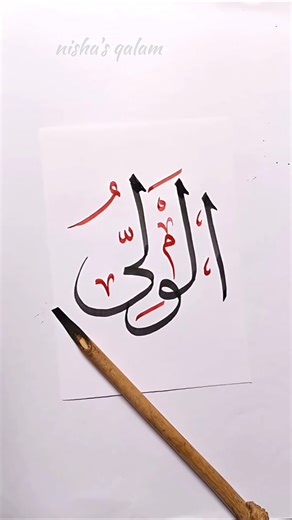 nisha's qalam
الْوَلِيُّ